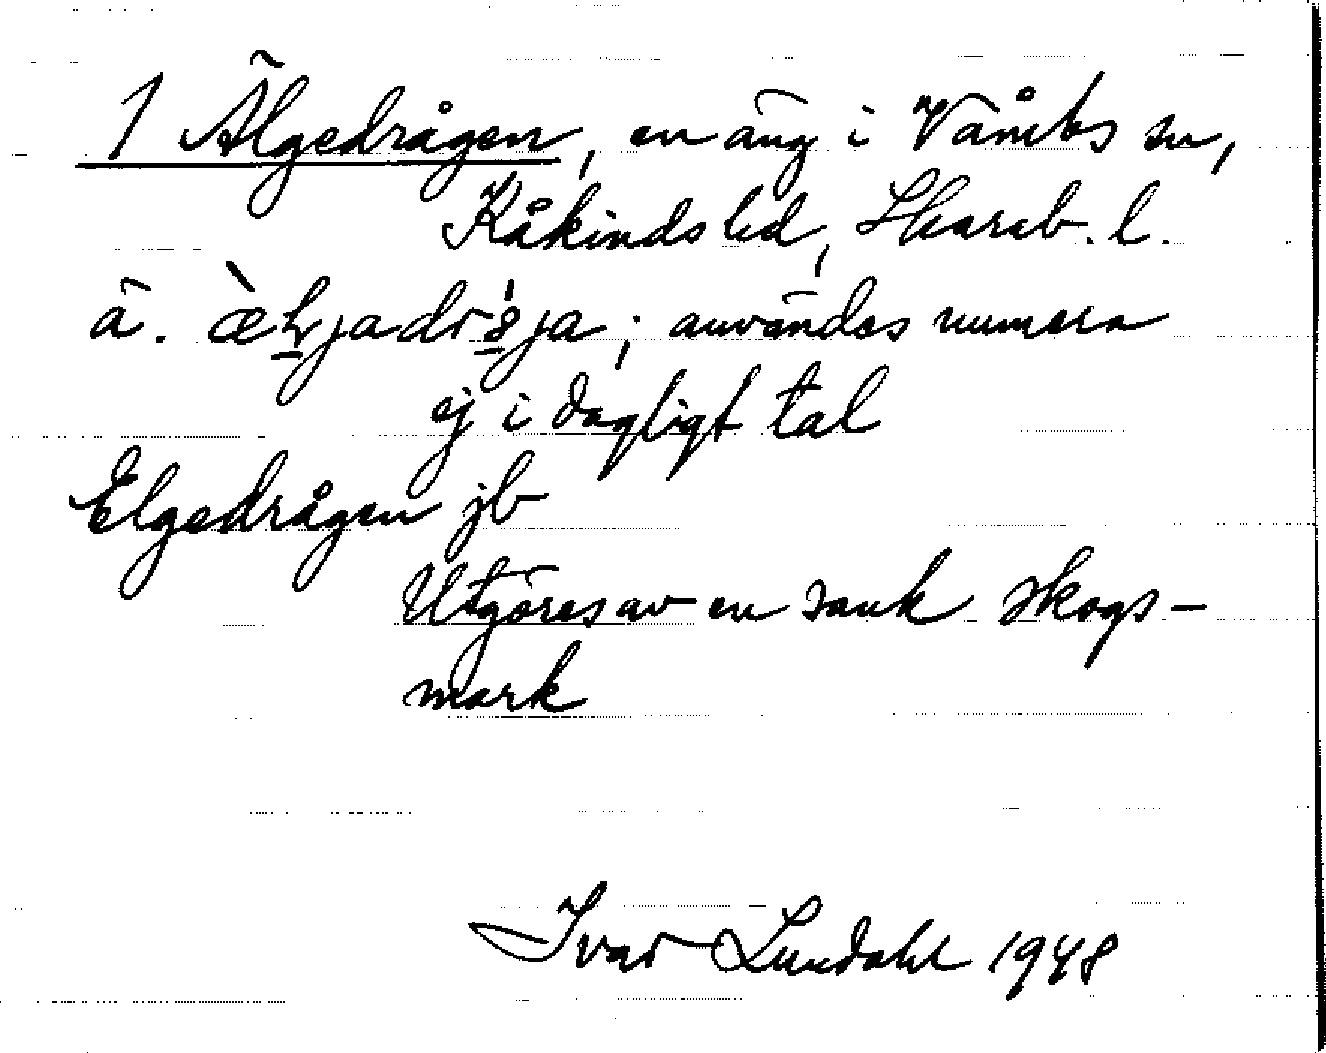 1 Älgedrågen, en äng i Våmbs sn,
Kåkinds hd, Skarab. l.
ä.
användes numera
ej i dagligt tal
Elgedrågen jb
Utgöres av en sank skogs-
mark
Ivar Lundahl 1948